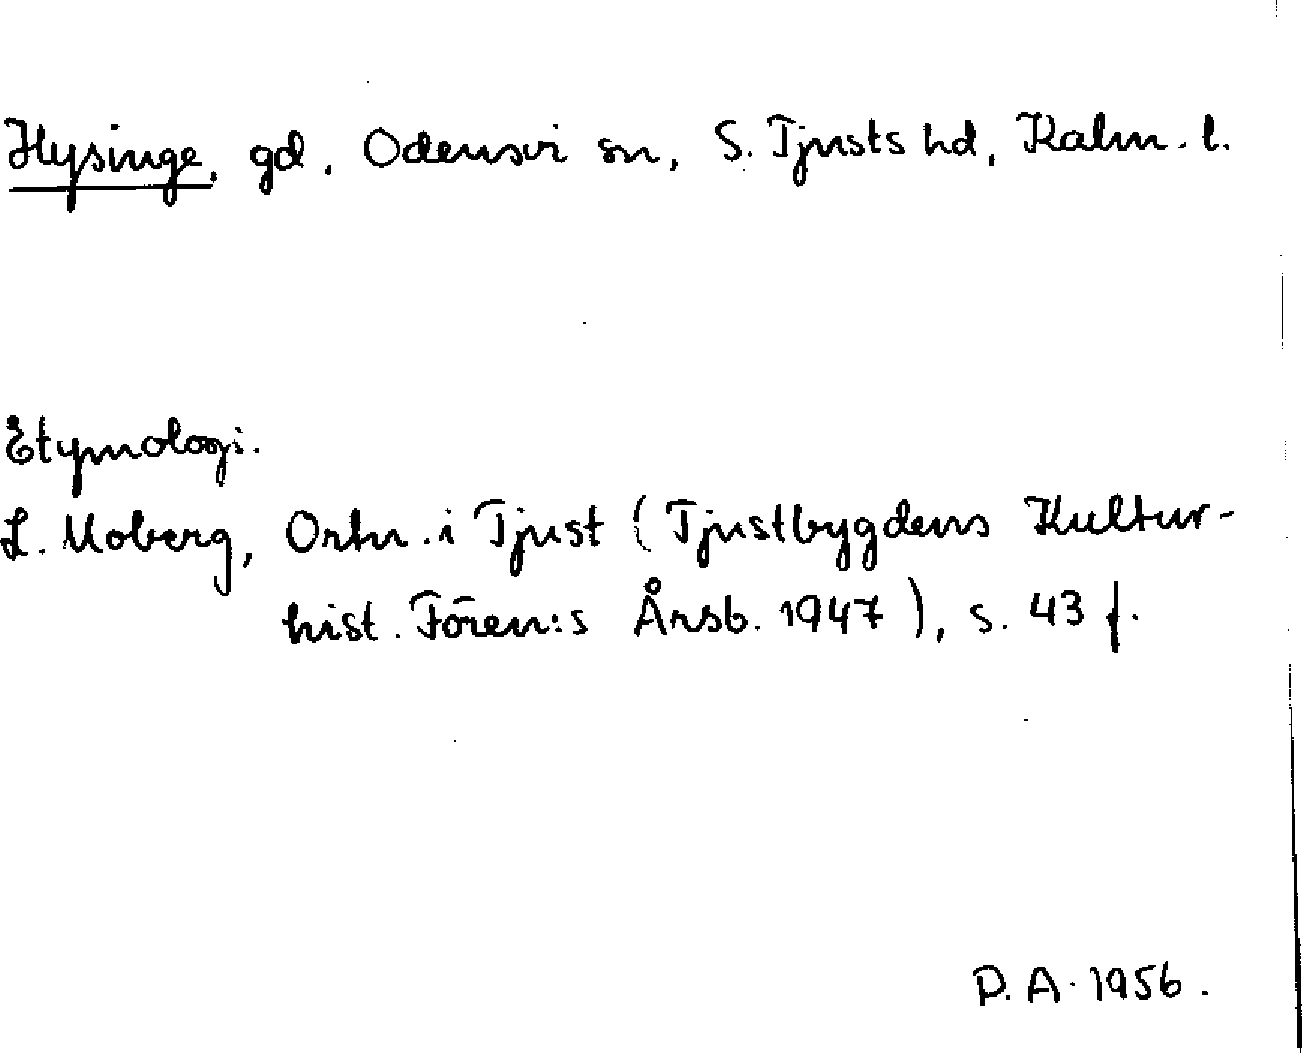 Hysinge, gd, Odensvi sn, S. Tjusts hd, Kalm. l.
Etymologi.
L. Moberg, Ortn. i Tjust (Tjustbygdens Kultur-
hist. Fören:s Årsb. 1947), s. 43 f.
D. A. 1956.